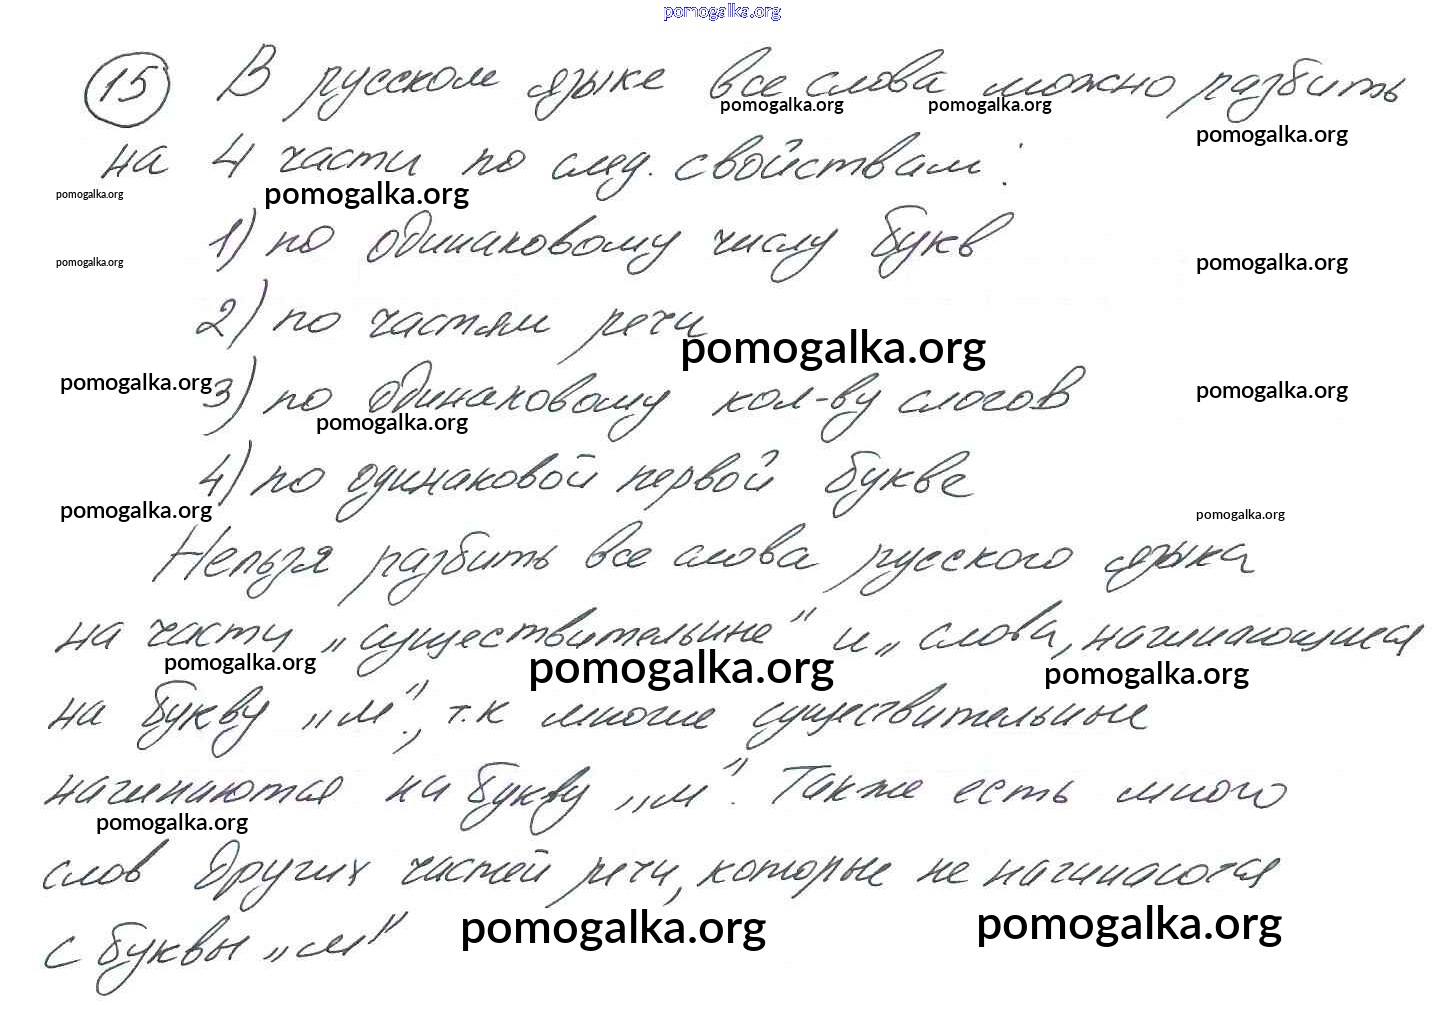 pomogalka.org
15 В русском языке все слова можно разбить
pomogalka.org pomogalka.org
pomogalka.org
на 4 части по след. свойствам:
pomogalka.org pomogalka.org
1) по одинаковому числу букв
pomogalka.org pomogalka.org
2) по частям речи
pomogalka.org
pomogalka.org pomogalka.org
3) по одинаковому кол-ву слогов
pomogalka.org
4) по одинаковой первой букве
pomogalka.org pomogalka.org
Нельзя разбить все слова русского языка
на части „существительные" и „слова, начинающиеся
pomogalka.org pomogalka.org pomogalka.org
на букву „м", т.к многие существительные
начинаются на букву „м". Также есть много
pomogalka.org
слов других частей речи, которые не начинаются
с буквы „м"
pomogalka.org pomogalka.org